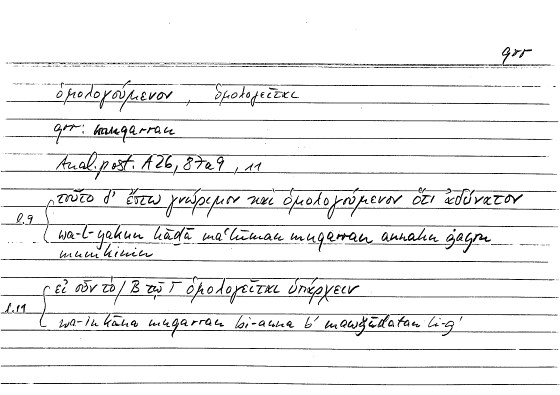 qrr
ὁμολογούμενον, ὁμολογεῖται
qrr: muqarran
Anal. post. A 26, 87a9, 11
τοῦτο δ' ἔστω γνώριμον καὶ ὁμολογούμενον ὅτι ἀδύνατον
l.9
wa-l-yakun hāḏā maʿlūman muqarran annahu ġayru
mumkinin
εἰ οὖν τὸ / Β τῷ Γ ὁμολογεῖται ὑπάρχειν
l.11
wa-in kāna muqarran bi-anna b' mawǧūdatan li-ǧ'